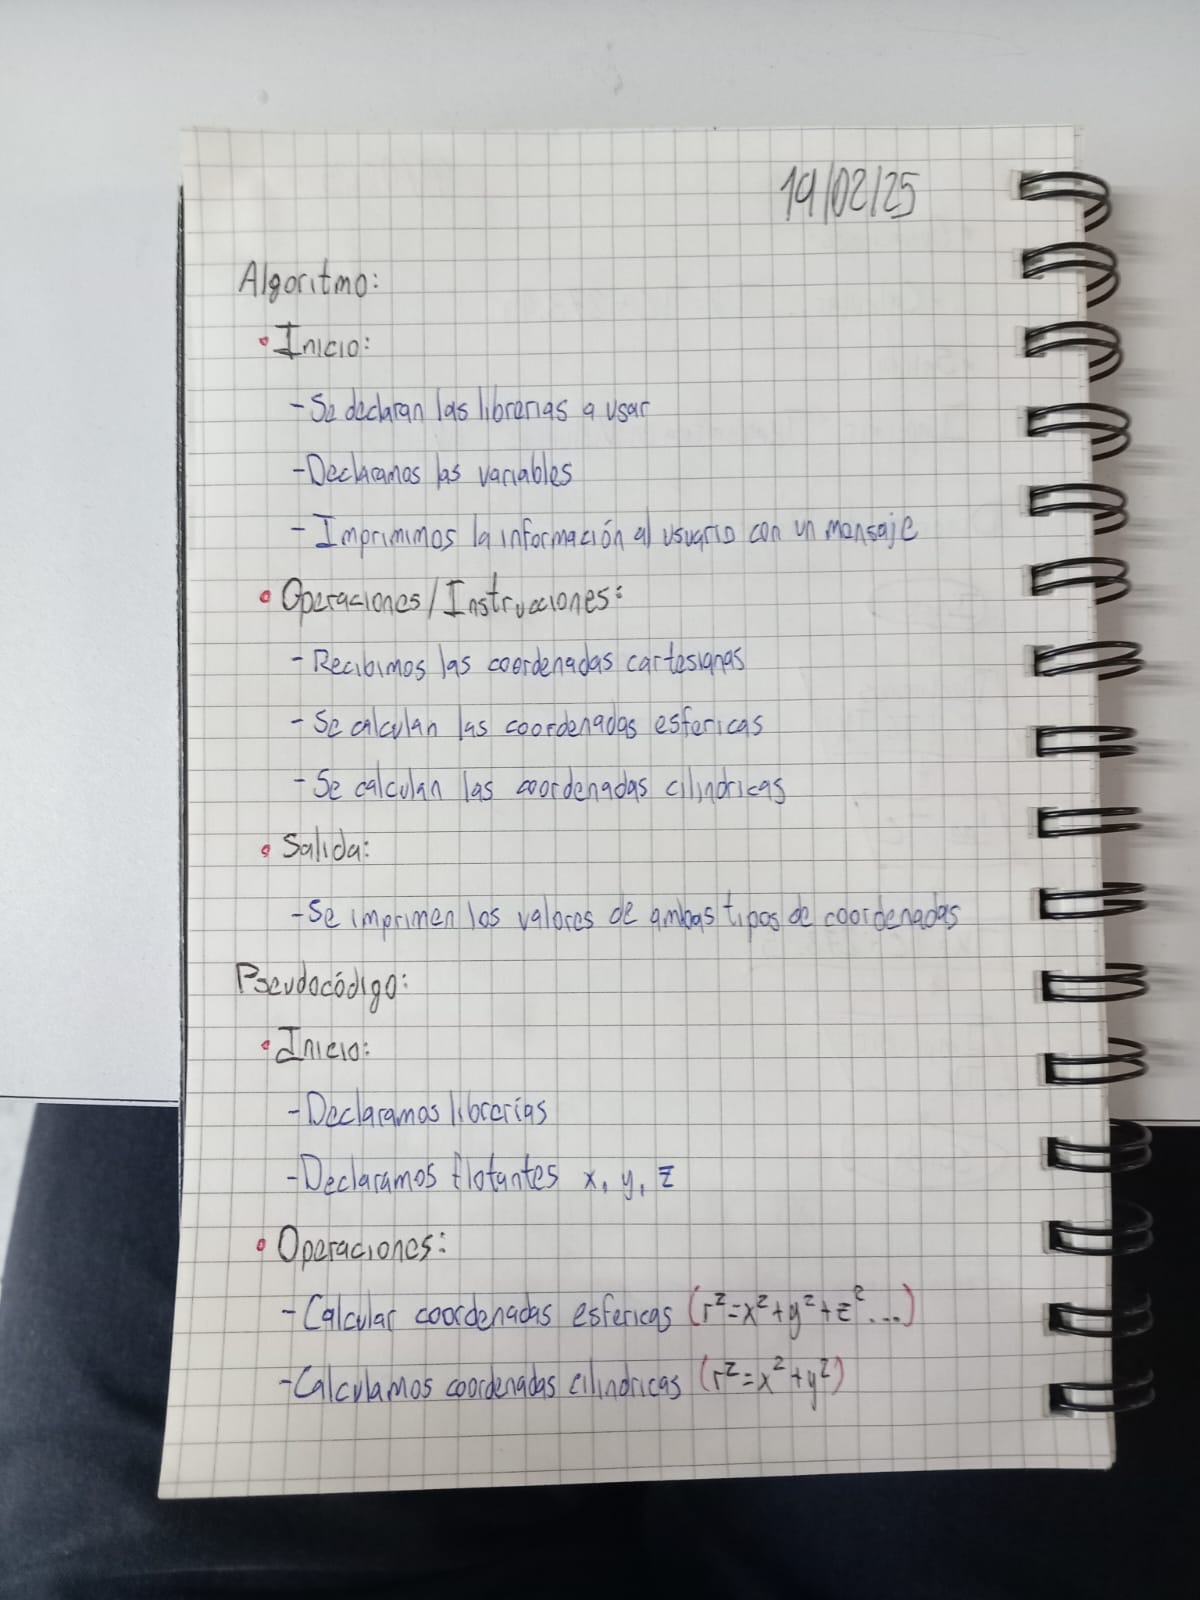 19/02/25
Algoritmo:
• Inicio:
- Se declaran las librerias a usar
- Declaramos las variables
- Imprimimos la información al usuario con un mensaje
• Operaciones/Instrucciones:
- Recibimos las coordenadas cartesianas
- Se calculan las coordenadas esfericas
- Se calculan las coordenadas cilindricas
• Salida:
- Se imprimen los valores de ambas tipos de coordenadas
Pseudocódigo:
• Inicio:
- Declaramos librerías
- Declaramos flotantes x, y, z
• Operaciones:
- Calcular coordenadas esfericas (r²=x²+y²+z²...)
- Calculamos coordenadas cilindricas (r²=x²+y²)